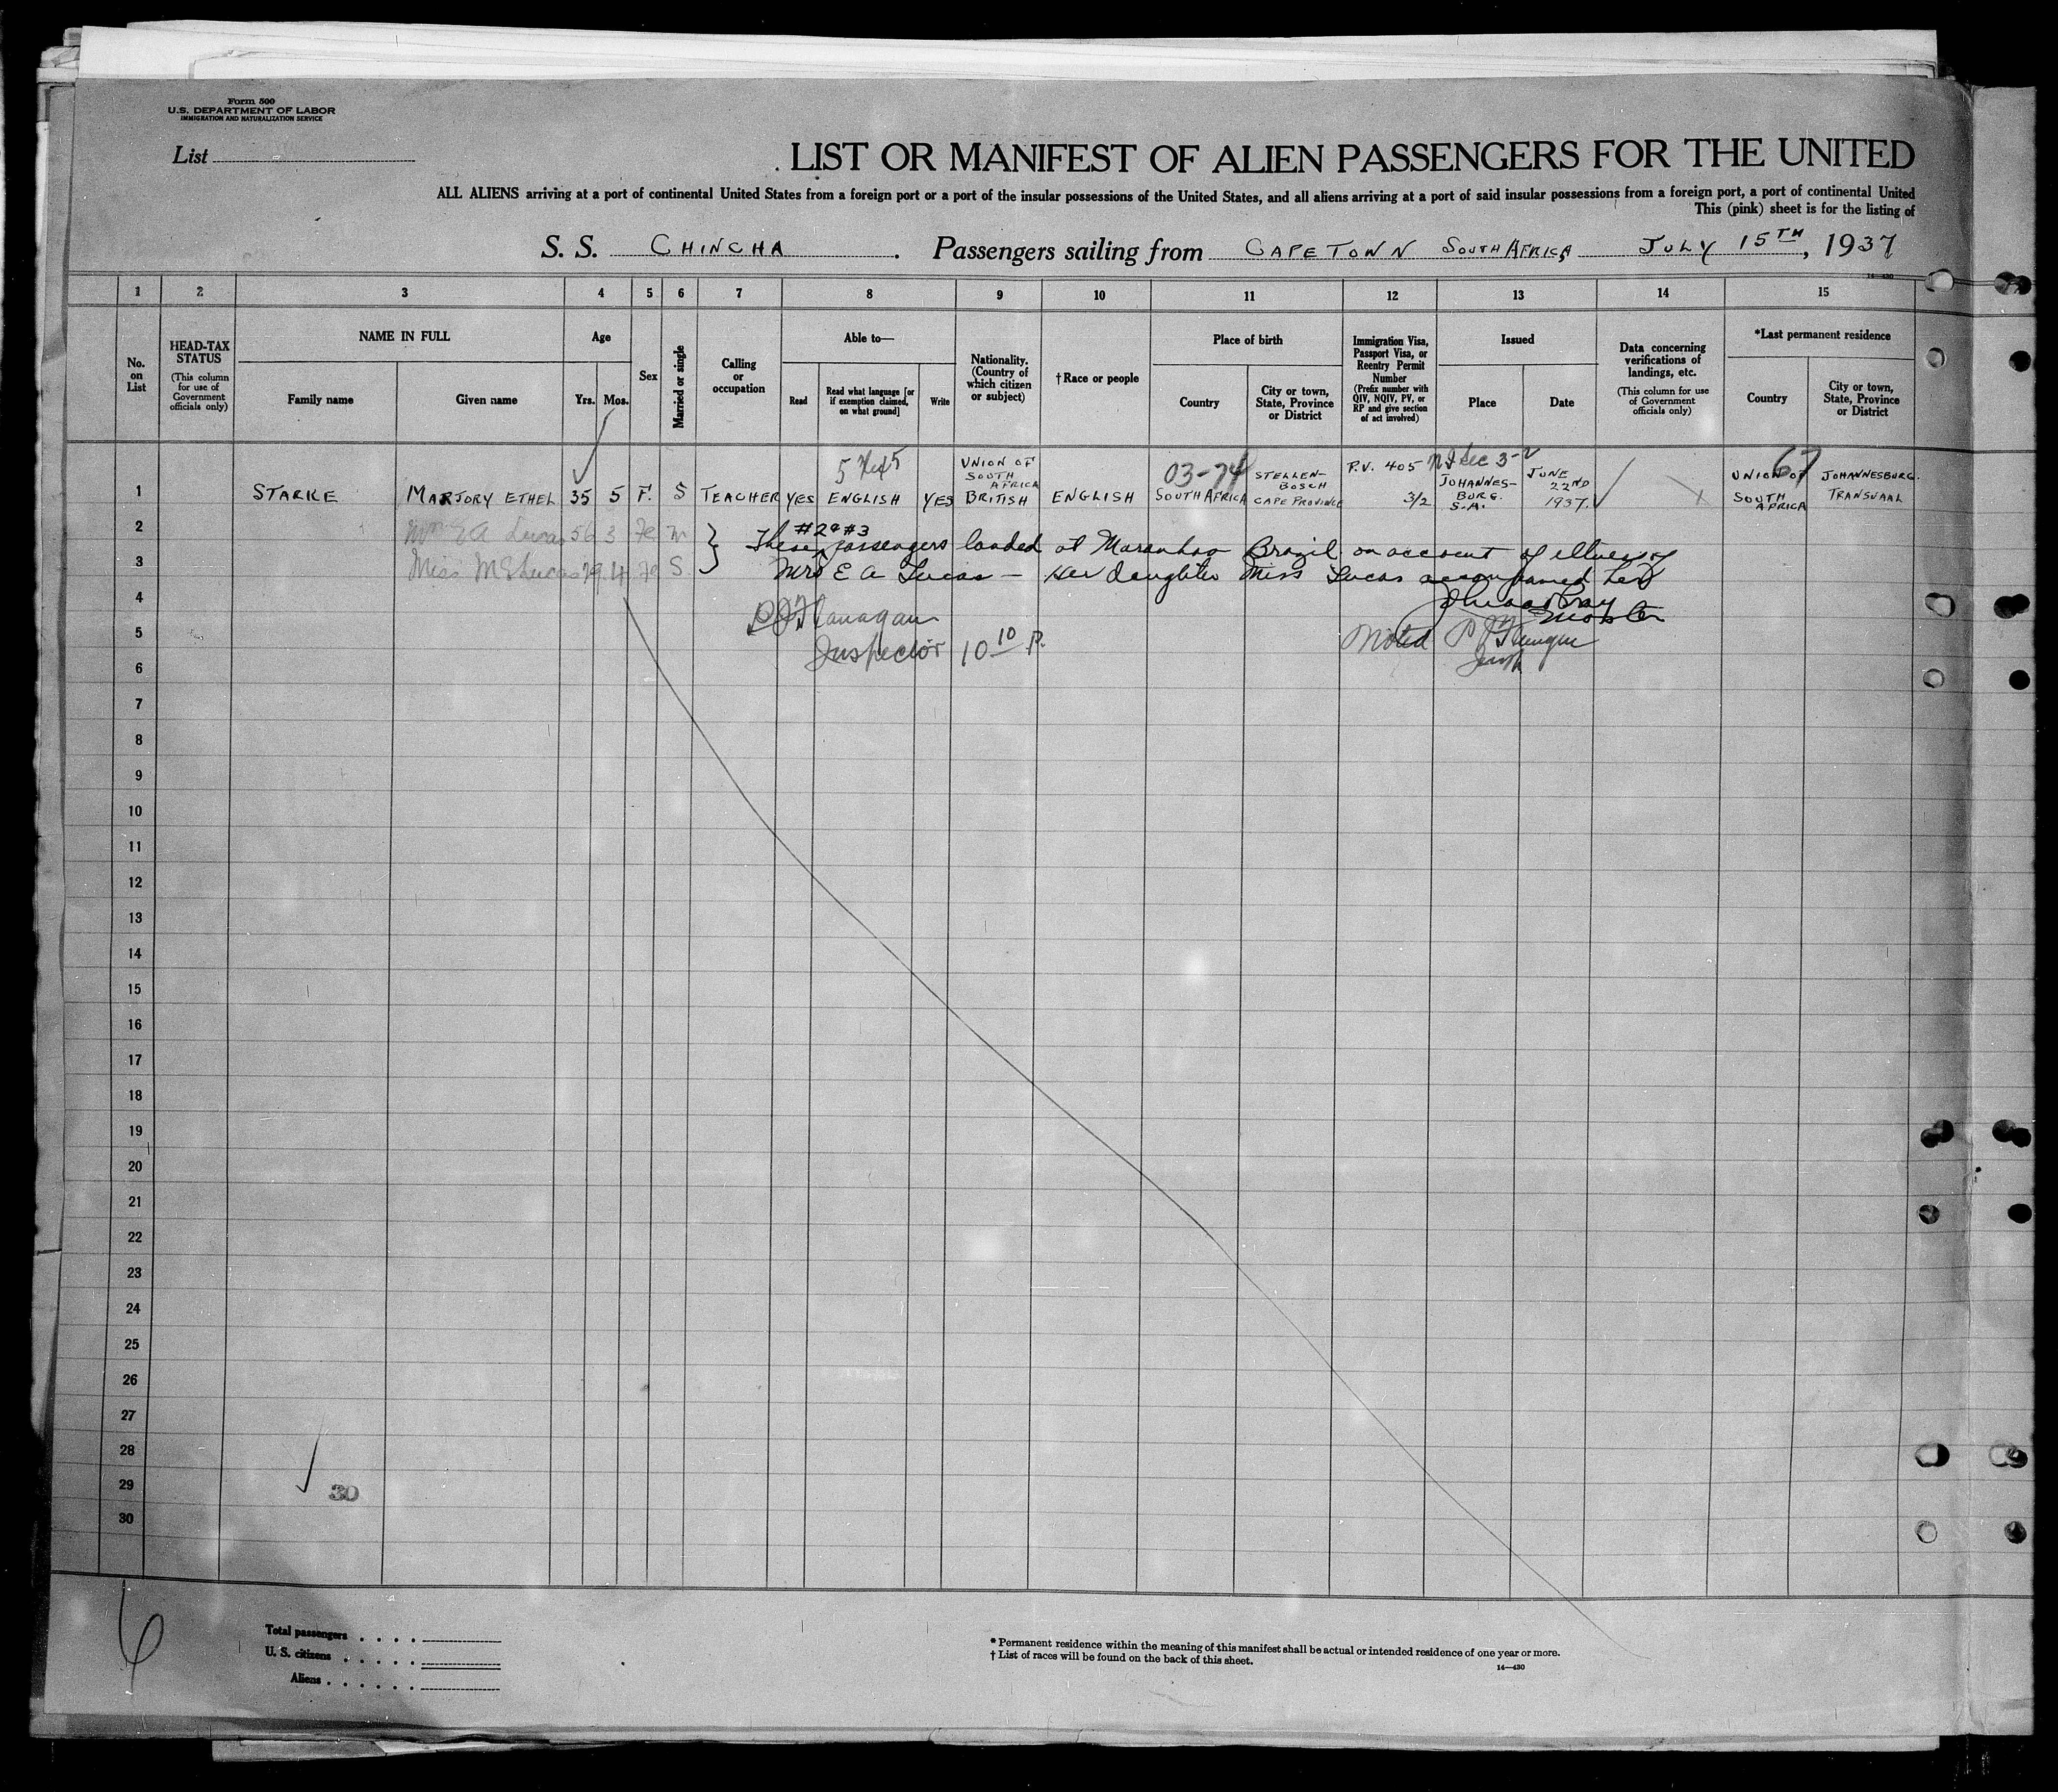 Form 500
U.S. DEPARTMENT OF LABOR
IMMIGRATION AND NATURALIZATION SERVICE
List
LIST OR MANIFEST OF ALIEN PASSENGERS FOR THE UNITED
ALL ALIENS arriving at a port of continental United States from a foreign port or a port of the insular possessions of the United States, and all aliens arriving at a port of said insular possessions from a foreign port, a port of continental United
This (pink) sheet is for the listing of
S. S. CHINCHA . Passengers sailing from CAPETOWN SOUTH AFRICA, JULY 15TH, 1937
14—430
1 2 3 4 5 6 7 8 9 10 11 12 13 14 15
No. on List
HEAD-TAX STATUS
(This column for use of Government officials only)
NAME IN FULL
Family name
Given name
Age
Yrs.
Mos.
Sex
Married or single
Calling or occupation
Able to—
Read
Read what language [or if exemption claimed, on what ground]
Write
Nationality. (Country of which citizen or subject)
†Race or people
Place of birth
Country
City or town, State, Province or District
Immigration Visa, Passport Visa, or Reentry Permit Number
(Prefix number with QIV, NQIV, PV, or RP and give section of act involved)
Issued
Place
Date
Data concerning verifications of landings, etc.
(This column for use of Government officials only)
*Last permanent residence
Country
City or town, State, Province or District
1 STARKE MARJORY ETHEL 35 5 F. S TEACHER YES ENGLISH YES UNION OF SOUTH AFRICA BRITISH ENGLISH 03-74 SOUTH AFRICA STELLENBOSCH CAPE PROVINCE P.V. 405 3/2 JOHANNESBURG. S.A. JUNE 22ND 1937. 67 UNION OF SOUTH AFRICA JOHANNESBURG. TRANSVAAL
2 Mrs E A Lucas 56 3 Fe M
#2 & #3
These passengers landed at Maranhao Brazil on account of illness of
3 Miss M E Lucas 29 4 Fe S
Mrs E A Lucas — Her daughter Miss Lucas accompanied her
4
Master
P J Flanagan
5
Inspector 10 10 P.
Noted P J Flanagan
Insp
6
7
8
9
10
11
12
13
14
15
16
17
18
19
20
21
22
23
24
25
26
27
28
29
30
30
6
Total passengers
U. S. citizens
Aliens
* Permanent residence within the meaning of this manifest shall be actual or intended residence of one year or more.
† List of races will be found on the back of this sheet.
14—430